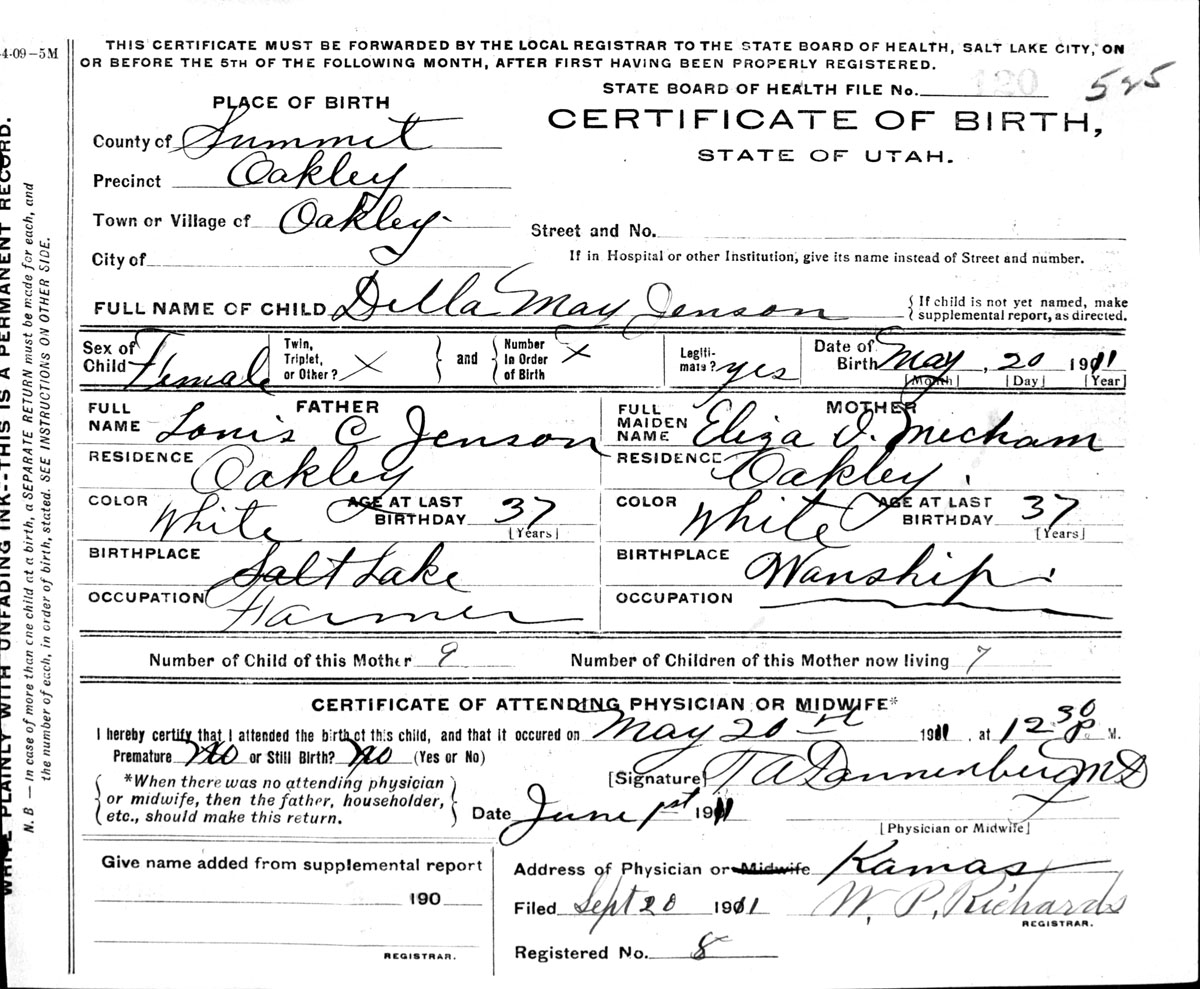 4-09-5M
THIS CERTIFICATE MUST BE FORWARDED BY THE LOCAL REGISTRAR TO THE STATE BOARD OF HEALTH, SALT LAKE CITY, ON
OR BEFORE THE 5TH OF THE FOLLOWING MONTH, AFTER FIRST HAVING BEEN PROPERLY REGISTERED.
STATE BOARD OF HEALTH FILE No. 120 525
PLACE OF BIRTH
CERTIFICATE OF BIRTH,
STATE OF UTAH.
County of Summit
Precinct Oakley
Town or Village of Oakley
Street and No.
City of
If in Hospital or other Institution, give its name instead of Street and number.
FULL NAME OF CHILD Della May Jenson { If child is not yet named, make
supplemental report, as directed.
Sex of Child Female Twin, Triplet, or Other? X } and { Number In Order of Birth X Legiti- mate? yes Date of Birth May, 20 1911
[Month] [Day] [Year]
FATHER
FULL NAME Louis C Jenson
RESIDENCE Oakley
COLOR White AGE AT LAST BIRTHDAY 37
[Years]
BIRTHPLACE Salt Lake
OCCUPATION Farmer
MOTHER
FULL MAIDEN NAME Eliza I. Mecham
RESIDENCE Oakley.
COLOR White AGE AT LAST BIRTHDAY 37
[Years]
BIRTHPLACE Wanship.
OCCUPATION
Number of Child of this Mother 9 Number of Children of this Mother now living 7
CERTIFICATE OF ATTENDING PHYSICIAN OR MIDWIFE*
I hereby certify that I attended the birth of this child, and that it occured on May 20 1911, at 12 30 P. M.
Premature No or Still Birth? No (Yes or No)
*When there was no attending physician
or midwife, then the father, householder,
etc., should make this return.
[Signature] T A Dannenberg MD
Date June 1st 1911
[Physician or Midwife]
Give name added from supplemental report
190
REGISTRAR.
Address of Physician or Midwife Kamas
Filed Sept 20 1911 W. P. Richards
REGISTRAR.
Registered No. 8
WRITE PLAINLY WITH UNFADING INK--THIS IS A PERMANENT RECORD.
N. B — In case of more than one child at a birth, a SEPARATE RETURN must be made for each, and
the number of each, in order of birth, stated. SEE INSTRUCTIONS ON OTHER SIDE.